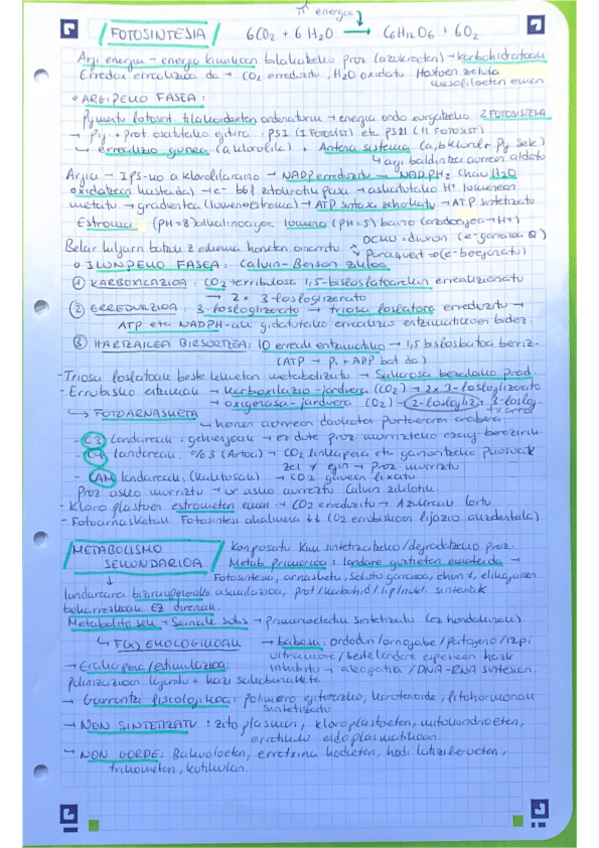 π energia
FOTOSINTESIA 6CO2 + 6 H2O → C6H12O6 + 6O2
Argi energia → energia kimikoan bilakabeko proz (azukreetan) → karbohidratoak
Erredox erreakzioa da → CO2 erreduzitu, H2O oxidatu Hostoen zelula
mesofiloetan eman
• ARGIPEKO FASEA:
Pigmentu fotosint. tilakoideetan ordenaturik → energia ondo xurgatzeko 2 FOTOSISTEMA
→ Pig. + prot osatutako egitura: PSI (I FOTOSIST) eta PSII (II FOTOSIST)
↳ erreakzio gunea (a klorofila) + Antena sistema (a, b klorof + Pig sek)
↳ argi baldintzen aurrean aldatu
Argia → I PS-ko a klorofilaraino → NADP erreduzitu → NADPH2 (hau H2O
oxidatzean hasitako) → e- b6f zitokromo pasa → askatutako H+ lumenean
metatu → gradientea (lumen-estroma) → ATP sintasa zeharkatu → ATP sintetizatu
Estroma (PH=8) alkalinoagoa lumena (PH=5) baino (azidoagoa → H+)
Belar hiltzaileen batzuk 2 eskema honetan oinarritu DCMU = diuron (e- garraioa Q)
paraquat → (e- bereganatu)
• ILUNPEKO FASEA: Calvin-Benson zikloa
① KARBOXILAZIOA: CO2 → erribulosa 1,5-bisfosfatoarekin erreakzionatu
→ 2 x 3-fosfoglizerato
② ERREDUKZIOA: 3-fosfoglizerato → triosa fosfatora erreduzitu →
ATP eta NADPH-ak gidatutako erreakzio entzimatikoen bidez.
③ HARTZAILEA BIRSORTZEA: 10 erreakt entzimatiko → 1,5 bisfosfatoa berriz.
(ATP → Pi + ADP bat da)
- Triosa fosfatoak beste lekuetan metabolizatu → Sakarosa bezalako prod.
- Errubisko entzimak → karboxilazio-jarduera (CO2) → 2x 3-fosfoglizerato
→ oxigenasa-jarduera (O2) → 2-fosfogliz + 3-fosfog.
↳ FOTOARNASKETA
↳ honen aurrean daukaten portaeraren arabera:
- C3 landareak: gehiengoak → ez dute proz. murrizteko ezaug. berezirik
- C4 landareak: %3 (Artoa) → CO2 finkapena eta garraiatzeko pausuak
→ proz murriztu
- CAM landareak (kaktusak) → CO2 gauean fixatu
Proz asko murriztu → ur asko aurreztu Calvin zikloan.
- Kloroplastoen estrometan eman → CO2 erreduzitu → Azukreak lortu
- Fotoarnasketak Fotosintesi ahalmena ↓↓ (O2 errubiskoan fijazio akzidentala)
METABOLISMO SEKUNDARIOA
Konposatu kim sintetizatzeko/degradatzeko proz.
Metab primarioa: landare guztietan emateda →
Fotosintesia, arnasketa, soluto garraioa, elikagaien
landarearen biziraupenerako asimilazioa, prot/karbohid/lip/nukl. sintesiak
beharrezkoak EZ direnak.
Metabolito sek → Seinale subs → primarioetatik sintetizatu (ez hondakinak)
↳ F(x) EKOLOGIKOAK → babesa: ordodun/ornogabe/patogeno/izpi
ultramore/beste landare espezieen hazk
→ Erakarpena/estimulazioa: inhibitu → alelopatia/DNA-RNA sintesian.
Polinizazioan lagundu + hazi sakabanaketa
→ Garrantzi fisiologikoa: polimero egiturazko, karotenoide, fitohormonak
sintetizatu
→ NON SINTETIZATU: zitoplasman, kloroplastoetan, mitokondrioetan,
erretikulu endoplasmatikoan.
→ NON GORDE: Bakuoloetan, erretxina hodietan, hodi latiziferoetan,
trikometan, kutikulan.